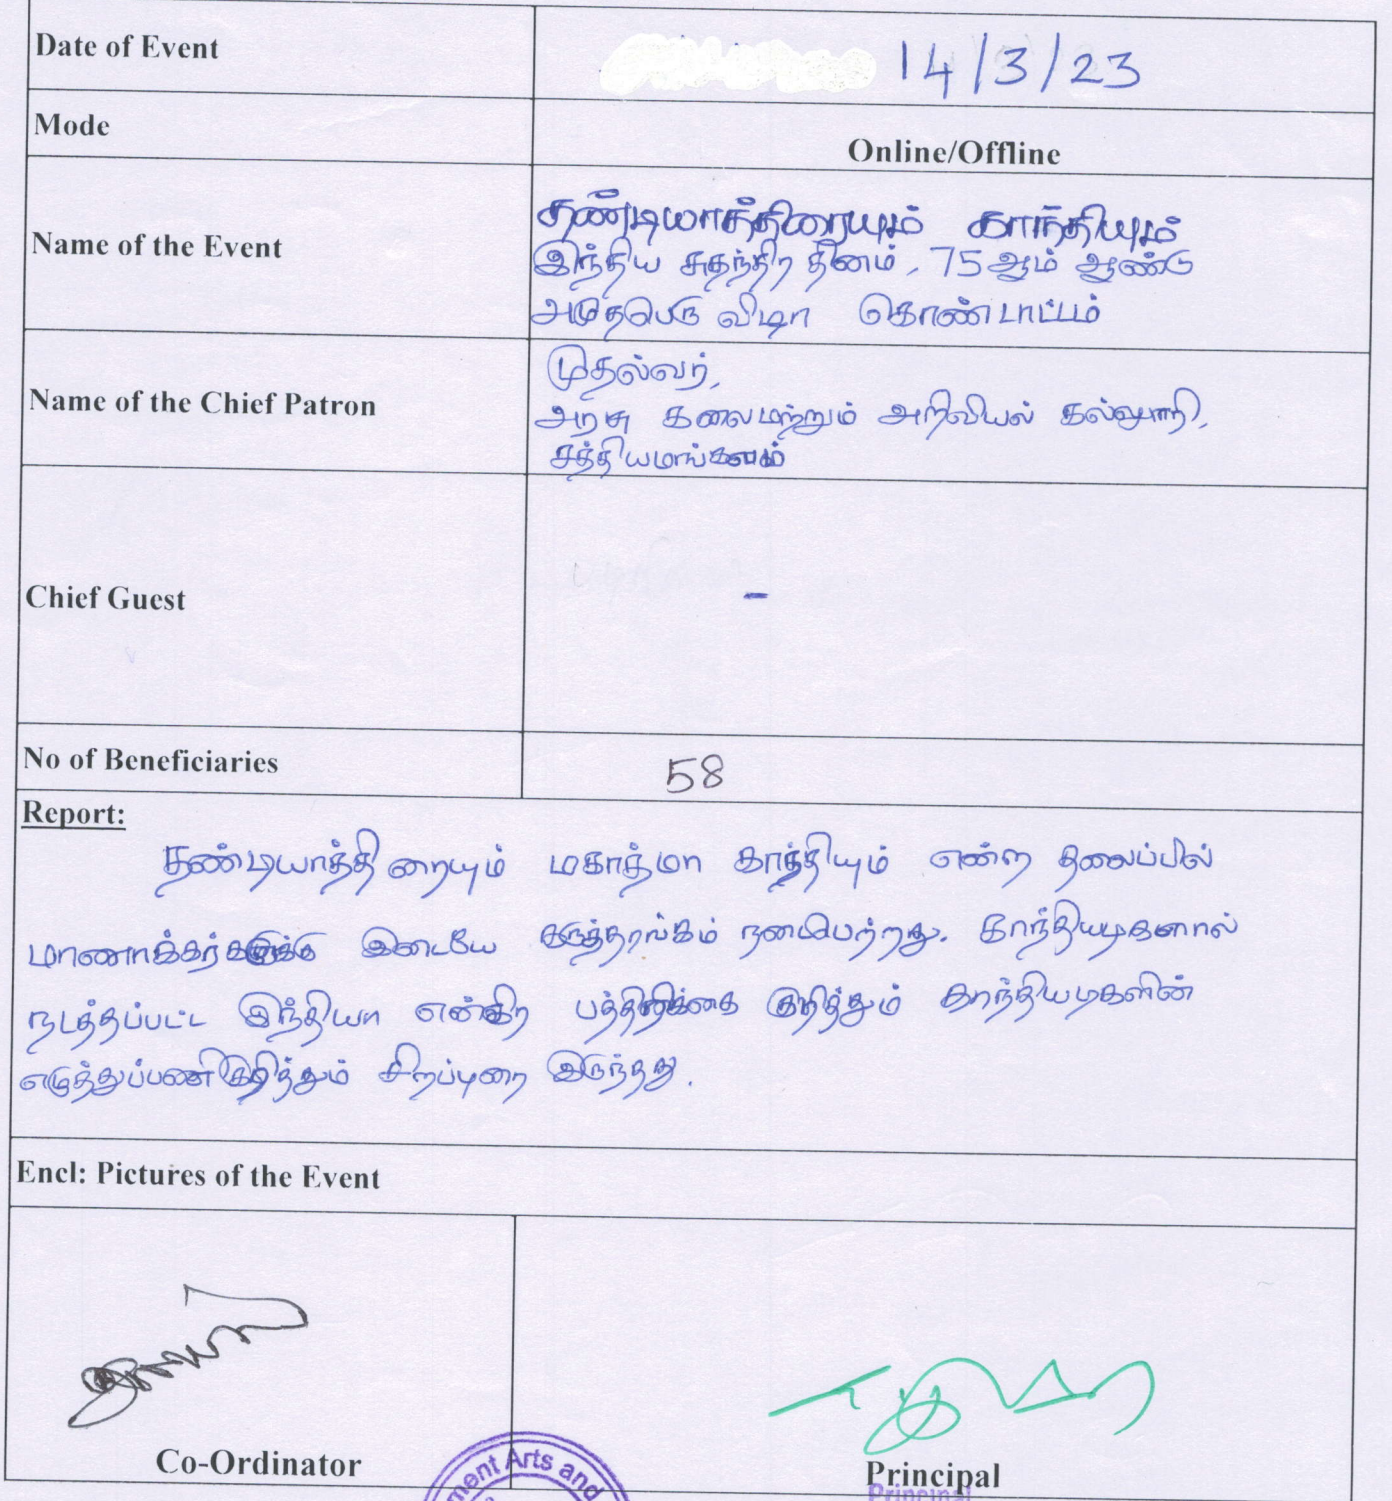 Date of Event 14/3/23
Mode Online/Offline
Name of the Event
தண்டியாத்திறையும் காந்தியும்
இந்திய சுதந்திர தினம், 75ஆம் ஆண்டு
அமுதபெரு விழா கொண்டாட்டம்
Name of the Chief Patron
முதல்வர்,
அரசு கலைமற்றும் அறிவியல் கல்லூரி,
சத்தியமங்கலம்
Chief Guest -
No of Beneficiaries 58
Report:
தண்டியாத்திறையும் மகாத்மா காந்தியும் என்ற தலைப்பில்
மாணாக்கர்களுக்கு இடையே கருத்தரங்கம் நடைபெற்றது. காந்தியடிகளால்
நடத்தப்பட்ட இந்தியா என்கிற பத்திரிக்கை குறித்தும் காந்தியடிகளின்
எழுத்துப்பணி குறித்தும் சிறப்புரை இருந்தது.
Encl: Pictures of the Event
Co-Ordinator
Principal
Principal
ment Arts and